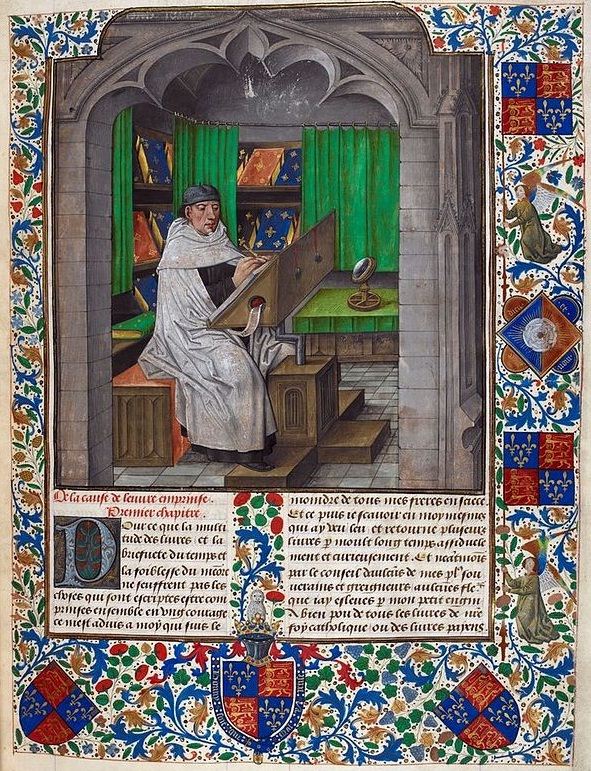 De la cause de leuure emprinse.
Premier chapitre.
Pour ce que la multi
tude des liures et la
briefuete du temps et
la foiblesse du
ne seuffrent pas les
choses qui sont escriptes estre com
prinses ensemble en vng courage
ce mest aduis a moy qui suis le
moindre de tous mes freres en
Et ce puis ie scauoir en moy mesmes
qui ay veu leu et retourne pluseurs
liures p moult long temps assiduele
ment et curieusement. Et
par le conseil daulcuns de mes plꝰ sou
uerains et greigneurs aulcunes
que iay esleues p mon petit engin
a bien pou de tous les liures de nre
foy catholique ou des liures payens